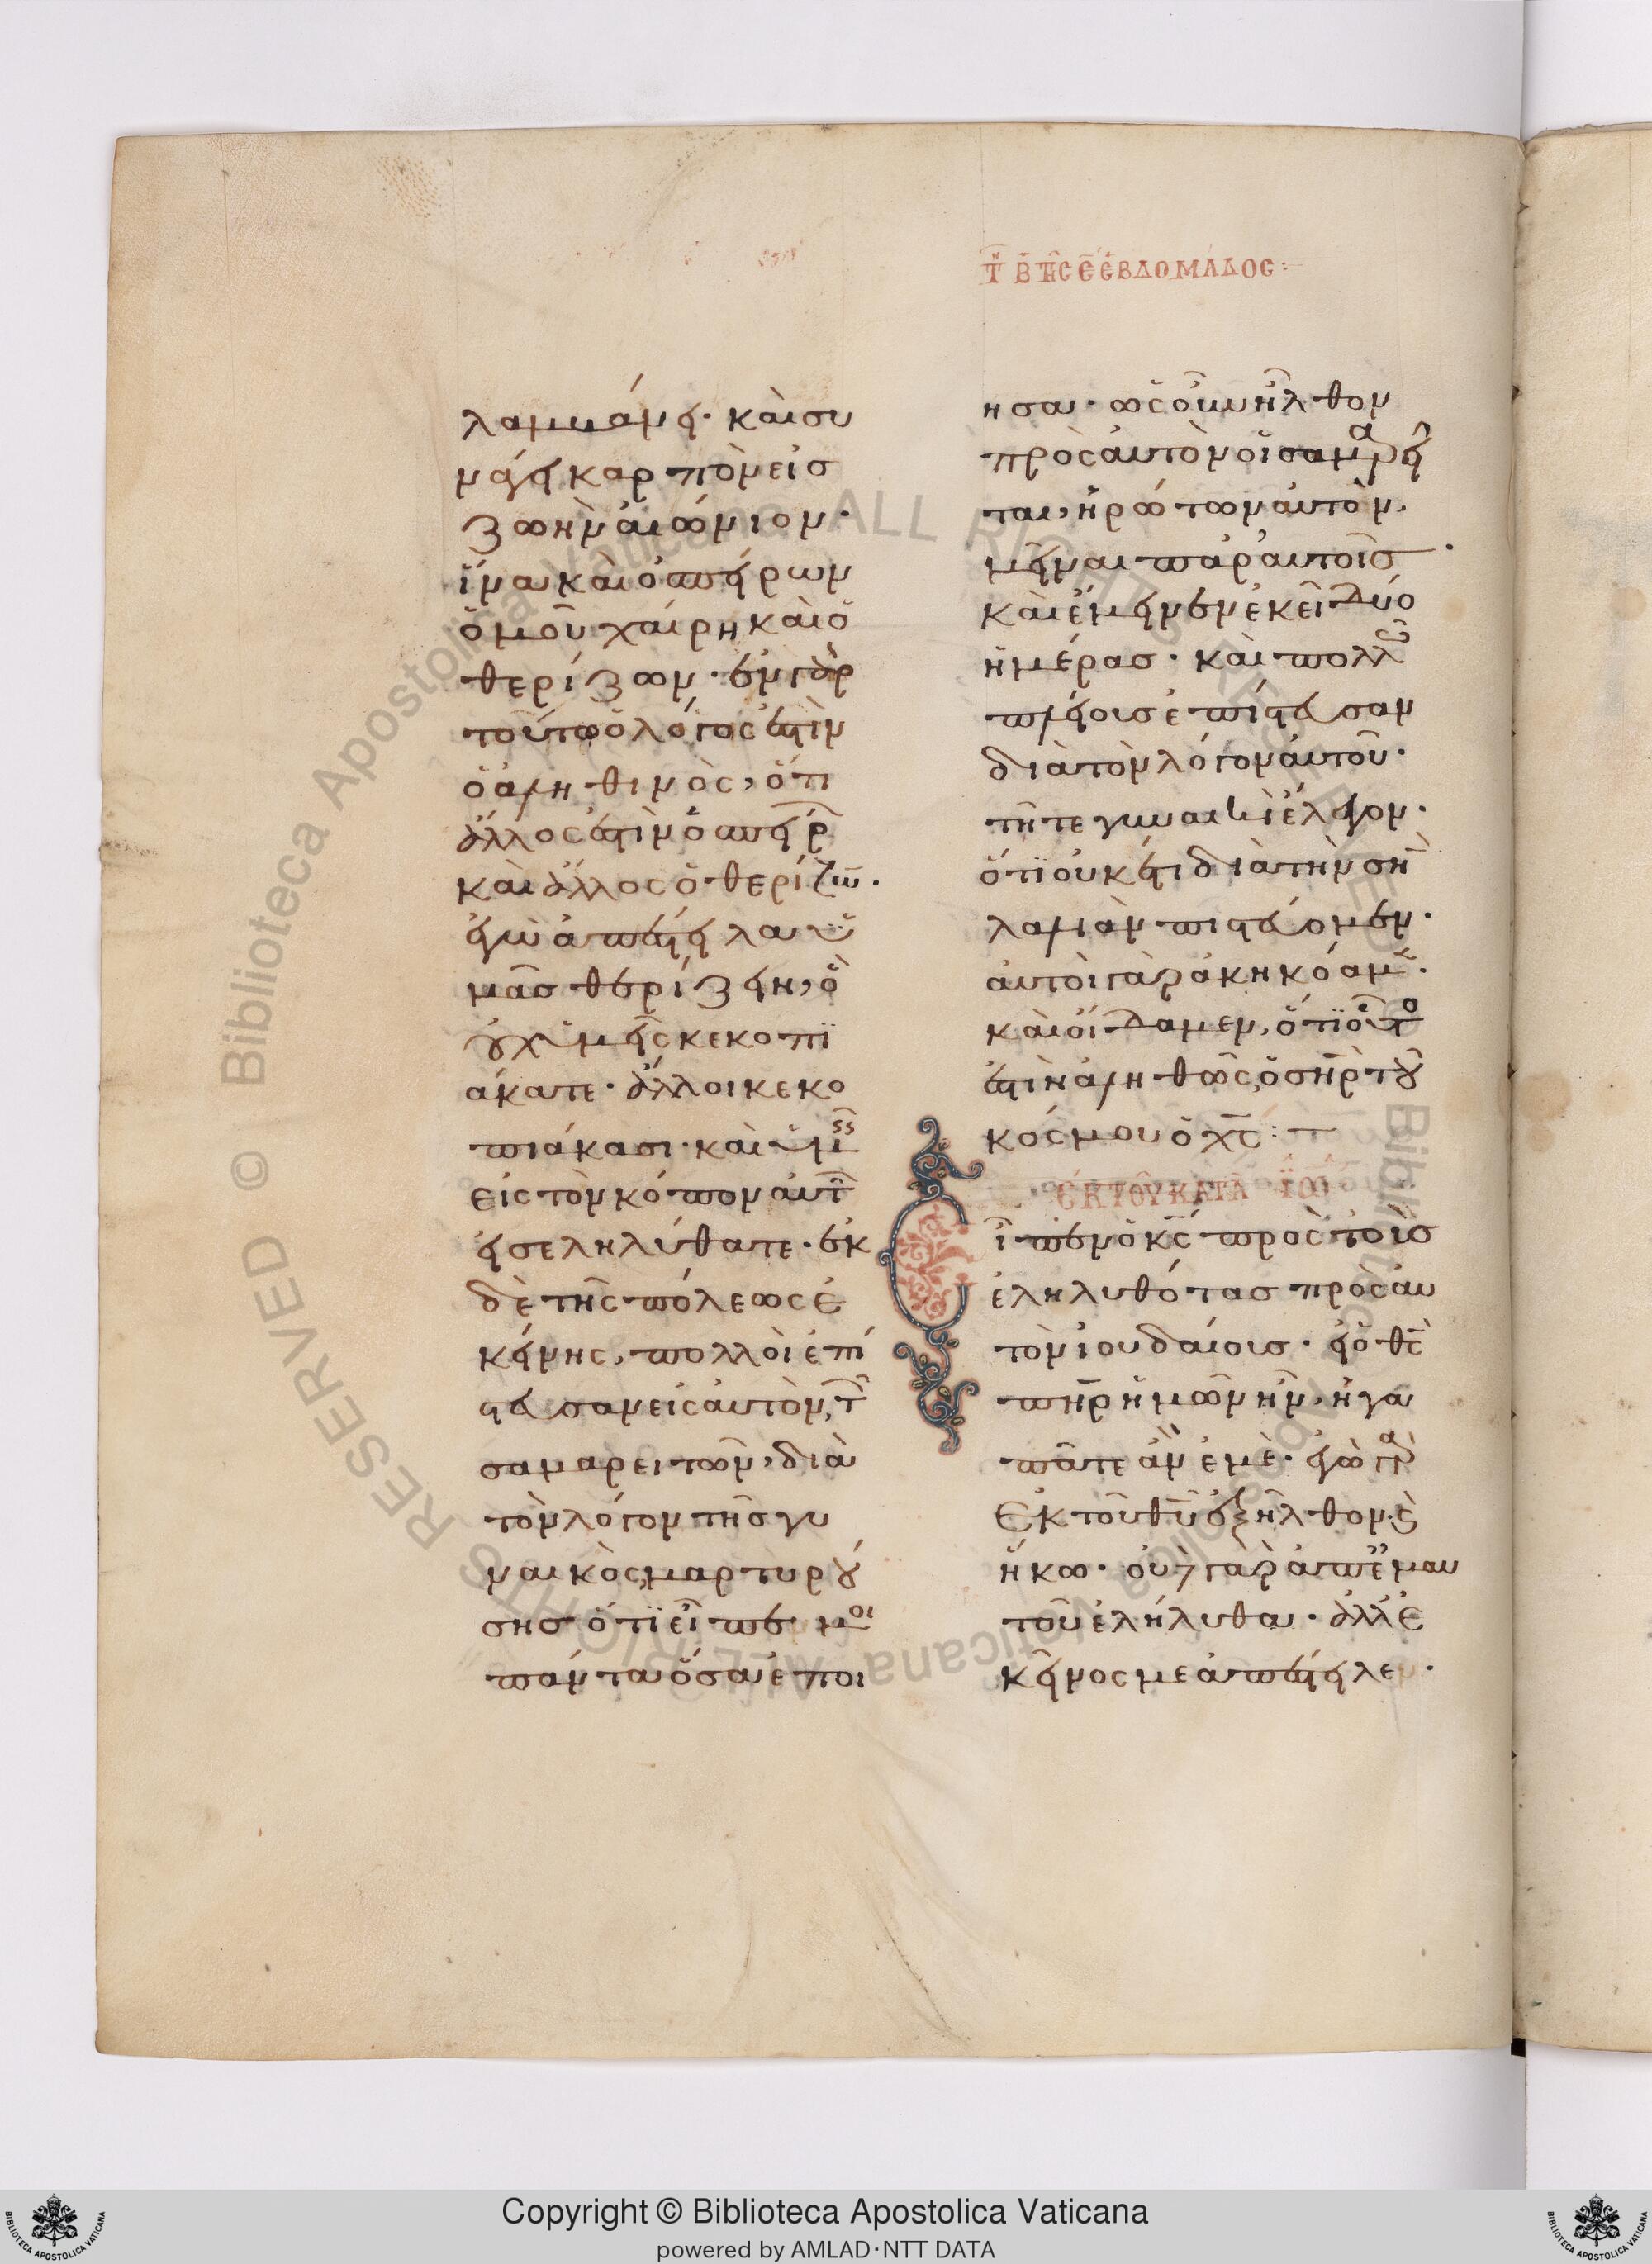 τῆ Β τῆς Ε ἑβδομάδος :
λαμβάνει· καὶ συ
νάγει καρπὸν εἰς
ζωὴν αἰώνιον·
ἵνα καὶ ὁ σπείρων
ὁμοῦ χαίρη καὶ ὁ
θερίζων· ἐν γὰρ
τούτω ὁ λόγος ἐστὶν
ὁ ἀληθινὸς, ὅτι
ἄλλος ἐστὶν ὁ σπείρ
καὶ ἄλλος ὁ θερίζων·
ἐγὼ ἀπέστειλα ὑ
μᾶς θερίζειν, ὃ
οὐχ ὑμεῖς κεκοπι
άκατε· ἄλλοι κεκο
πιάκασι· καὶ ὑμεῖς
εἰς τὸν κόπον αὐτῶν
εἰσεληλύθατε· ἐκ
δὲ τῆς πόλεως ἐ
κείνης, πολλοὶ ἐπί
στευσαν εἰς αὐτὸν, τῶν
σαμαρειτῶν, διὰ
τὸν λόγον τῆς γυ
ναικὸς, μαρτυρού
σης ὅτι εἶπε μοι
πάντα ὅσα ἐποι
ησα· ὡς οὖν ἦλθον
πρὸς αὐτὸν οἱ σαμαρεῖ
ται, ἠρώτων αὐτὸν,
μεῖναι παρ αὐτοῖς·
καὶ ἔμεινεν ἐκεῖ δύο
ἡμέρας· καὶ πολλῶ
πλείους ἐπίστευσαν
διὰ τὸν λόγον αὐτοῦ·
τῆ τε γυναικὶ ἔλεγον·
ὅτι οὐκέτι διὰ τὴν σὴν
λαλιὰν πιστεύομεν·
αὐτοὶ γὰρ ἀκηκόαμεν·
καὶ οἴδαμεν, ὅτι οὗτος
ἐστιν ἀληθῶς ὁ σηρ τοῦ
κόσμου ὁ χς :
ἐκ τοῦ κατὰ Ἰω
Εἶπεν ὁ κς πρὸς τοὺς
ἐληλυθότας πρὸς αὐ
τὸν ἰουδαίους· εἰ ὁ θς
πηρ ἡμῶν ἦν, ἠγα
πᾶτε ἂν ἐμὲ· ἐγὼ γὰρ
ἐκ τοῦ θυ ἐξῆλθον· καὶ
ἥκω· οὐδὲ γὰρ ἀπ ἐμαυ
τοῦ ἐλήλυθα· ἀλλ ἐ
κεῖνος με ἀπέστειλεν·
Copyright © Biblioteca Apostolica Vaticana
powered by AMLAD·NTT DATA
© Biblioteca Apostolica Vaticana ALL RIGHTS RESERVED